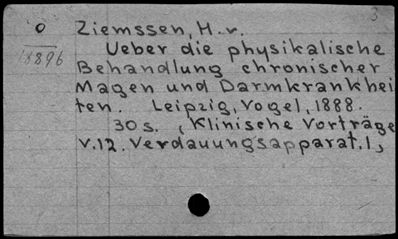 3
o Ziemssen, H. v.
18896 Ueber die physikalische
Behandlung chronischer
Magen und Darmkrankhei
ten. Leipzig, Vogel, 1888.
30 s. (Klinische Vorträge
V.12. Verdauungsapparat. 1,